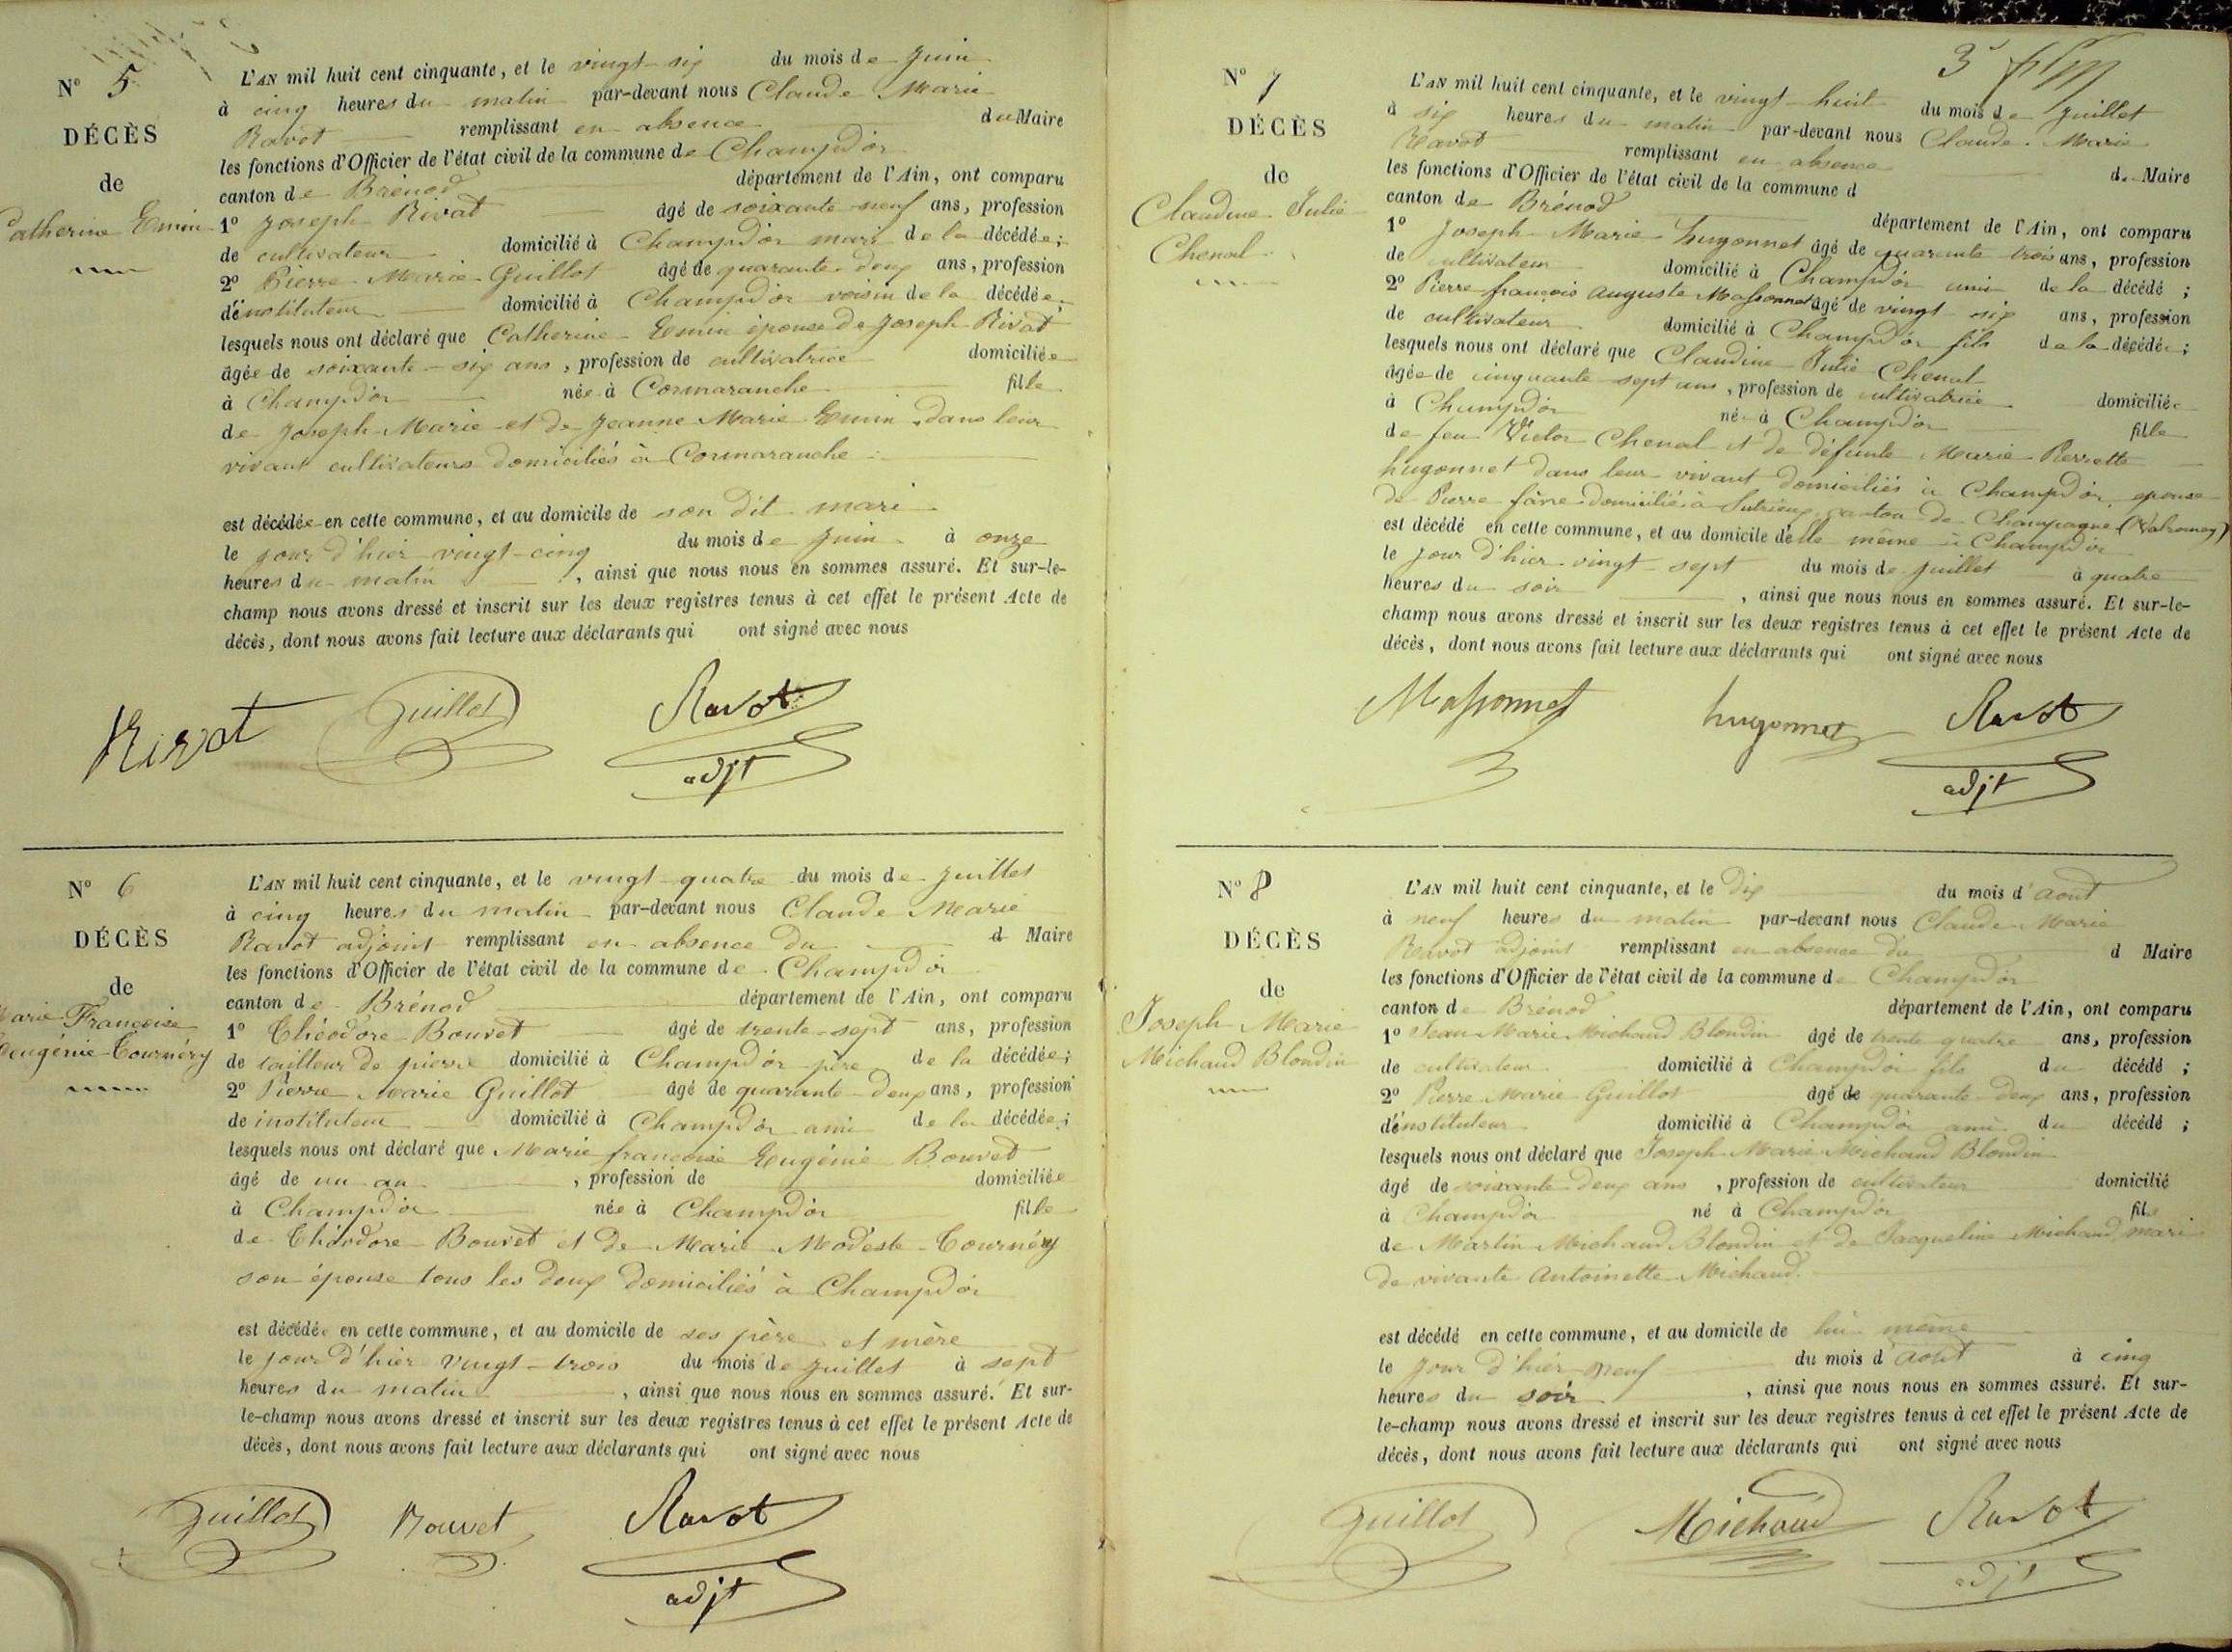 N° 5
DÉCÈS
de
Catherine Emin
L'AN mil huit cent cinquante, et le vingt-six du mois de Juin
à cinq heures du matin par-devant nous Claude Marie
Ravot remplissant en absence du Maire
les fonctions d'Officier de l'état civil de la commune de Champdor
canton de Brénod département de l'Ain, ont comparu
1° Joseph Rivat âgé de soixante-neuf ans, profession
de cultivateur domicilié à Champdor mari de la décédée;
2° Pierre Marie Guillot âgé de quarante-deux ans, profession
d'instituteur domicilié à Champdor voisin de la décédée;
lesquels nous ont déclaré que Catherine Emin épouse de Joseph Rivat
âgée de soixante-six ans, profession de cultivatrice domiciliée
à Champdor née à Cormaranche fille
de Joseph Marie et de Jeanne Marie Emin dans leur
vivant cultivateurs domiciliés à Cormaranche
est décédée en cette commune, et au domicile de son dit mari
le jour d'hier vingt-cinq du mois de Juin à onze
heures du matin, ainsi que nous nous en sommes assuré. Et sur-le-
champ nous avons dressé et inscrit sur les deux registres tenus à cet effet le présent Acte de
décès, dont nous avons fait lecture aux déclarants qui ont signé avec nous
Rivat Guillot Ravot
adjt
N° 6
DÉCÈS
de
Marie Françoise
Eugénie Tournéry
L'AN mil huit cent cinquante, et le vingt-quatre du mois de Juillet
à cinq heures du matin par-devant nous Claude Marie
Ravot adjoint remplissant en absence du d Maire
les fonctions d'Officier de l'état civil de la commune de Champdor
canton de Brénod département de l'Ain, ont comparu
1° Théodore Bouvet âgé de trente-sept ans, profession
de tailleur de pierre domicilié à Champdor père de la décédée;
2° Pierre Marie Guillot âgé de quarante-deux ans, profession
de instituteur domicilié à Champdor ami de la décédée;
lesquels nous ont déclaré que Marie françoise Eugénie Bouvet
âgé de un an, profession de domiciliée
à Champdor née à Champdor fille
de Théodore Bouvet et de Marie Modeste Tournéry
son épouse tous les deux domiciliés à Champdor
est décédée en cette commune, et au domicile de ses père et mère
le jour d'hier vingt-trois du mois de Juillet à sept
heures du matin, ainsi que nous nous en sommes assuré. Et sur-
le-champ nous avons dressé et inscrit sur les deux registres tenus à cet effet le présent Acte de
décès, dont nous avons fait lecture aux déclarants qui ont signé avec nous
Guillot Bouvet Ravot
adjt
3e
N° 7
DÉCÈS
de
Claudine Julie
Chenal
L'AN mil huit cent cinquante, et le vingt-huit du mois de Juillet
à six heures du matin par-devant nous Claude Marie
Ravot remplissant en absence d Maire
les fonctions d'Officier de l'état civil de la commune d
canton de Brénod département de l'Ain, ont comparu
1° Joseph Marie hugonnet âgé de quarante trois ans, profession
de cultivateur domicilié à Champdor ami de la décédé;
2° Pierre françois Auguste Massonnet âgé de vingt six ans, profession
de cultivateur domicilié à Champdor fils de la décédée;
lesquels nous ont déclaré que Claudine Julie Chenal
âgée de cinquante-sept ans, profession de cultivatrice domiciliée
à Champdor née à Champdor fille
de feu Victor Chenal et de défunte Marie Perrette
hugonnet dans leur vivant domiciliés à Champdor épouse
de Pierre domicilié à Sutrieux canton de Champagne (Valromey)
est décédé en cette commune, et au domicile d'elle même à Champdor
le jour d'hier vingt-sept du mois de Juillet à quatre
heures du soir, ainsi que nous nous en sommes assuré. Et sur-le-
champ nous avons dressé et inscrit sur les deux registres tenus à cet effet le présent Acte de
décès, dont nous avons fait lecture aux déclarants qui ont signé avec nous
Massonnet hugonnet Ravot
adjt
N° 8
DÉCÈS
de
Joseph Marie
Michaud Blondin
L'AN mil huit cent cinquante, et le dix du mois d'août
à neuf heures du matin par-devant nous Claude Marie
Ravot adjoint remplissant en absence du d Maire
les fonctions d'Officier de l'état civil de la commune de Champdor
canton de Brénod département de l'Ain, ont comparu
1° Jean Marie Michaud Blondin âgé de trente quatre ans, profession
de cultivateur domicilié à Champdor fils du décédé;
2° Pierre Marie Guillot âgé de quarante-deux ans, profession
d'instituteur domicilié à Champdor ami du décédé;
lesquels nous ont déclaré que Joseph Marie Michaud Blondin
âgé de soixante deux ans, profession de cultivateur domicilié
à Champdor né à Champdor fils
de Martin Michaud Blondin et de Jacqueline Michaud mari
de vivante Antoinette Michaud.
est décédé en cette commune, et au domicile de lui même
le jour d'hier neuf du mois d'août à cinq
heures du soir, ainsi que nous nous en sommes assuré. Et sur-
le-champ nous avons dressé et inscrit sur les deux registres tenus à cet effet le présent Acte de
décès, dont nous avons fait lecture aux déclarants qui ont signé avec nous
Guillot Michaud Ravot
adjt